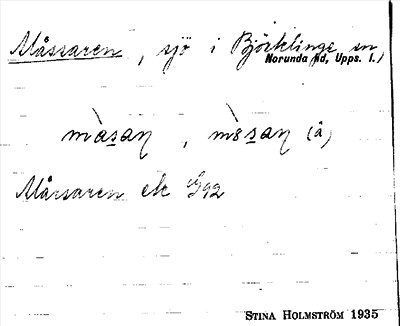 Måssaren, sjö i Björklinge sn
Norunda hd, Upps. l.
màsaɳ, mòsaɳ (å)
Mårsaren ek G92
STINA HOLMSTRÖM 1935